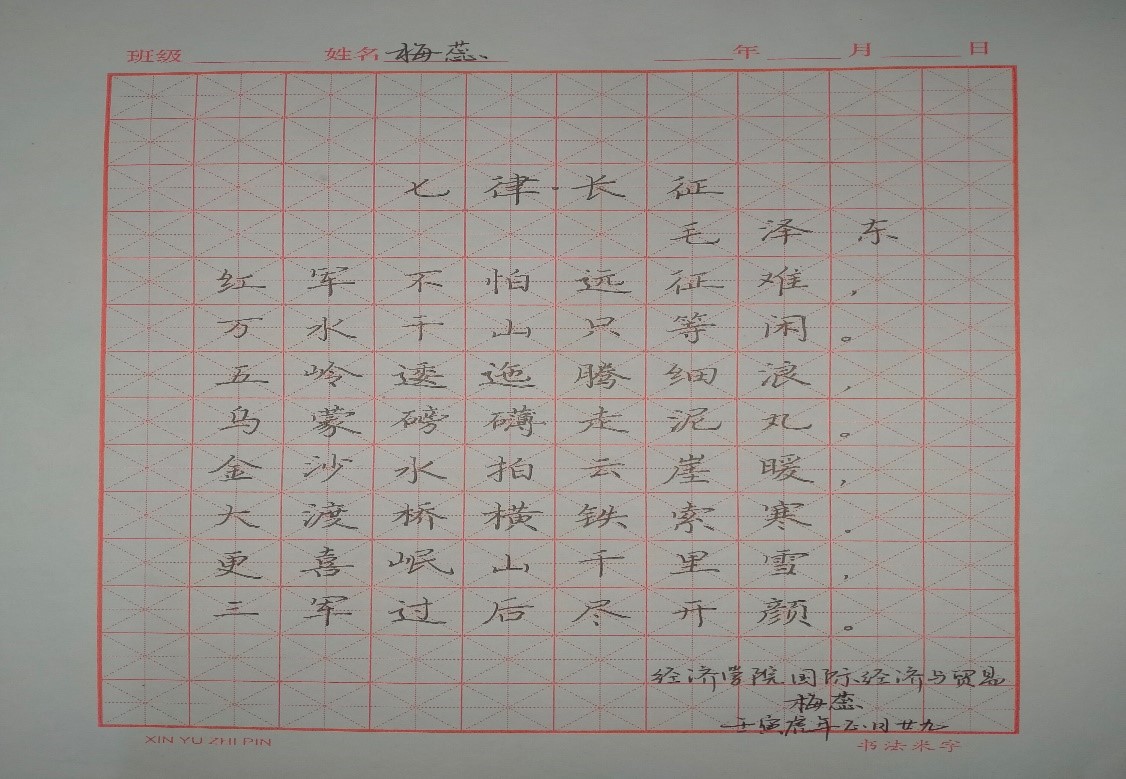 班级 姓名 梅蕊 年 月 日
七律·长征
毛泽东
红军不怕远征难，
万水千山只等闲。
五岭逶迤腾细浪，
乌蒙磅礴走泥丸。
金沙水拍云崖暖，
大渡桥横铁索寒。
更喜岷山千里雪，
三军过后尽开颜。
经济学院国际经济与贸易
梅蕊
壬寅虎年正月廿九
XIN YU ZHI PIN 书法米字